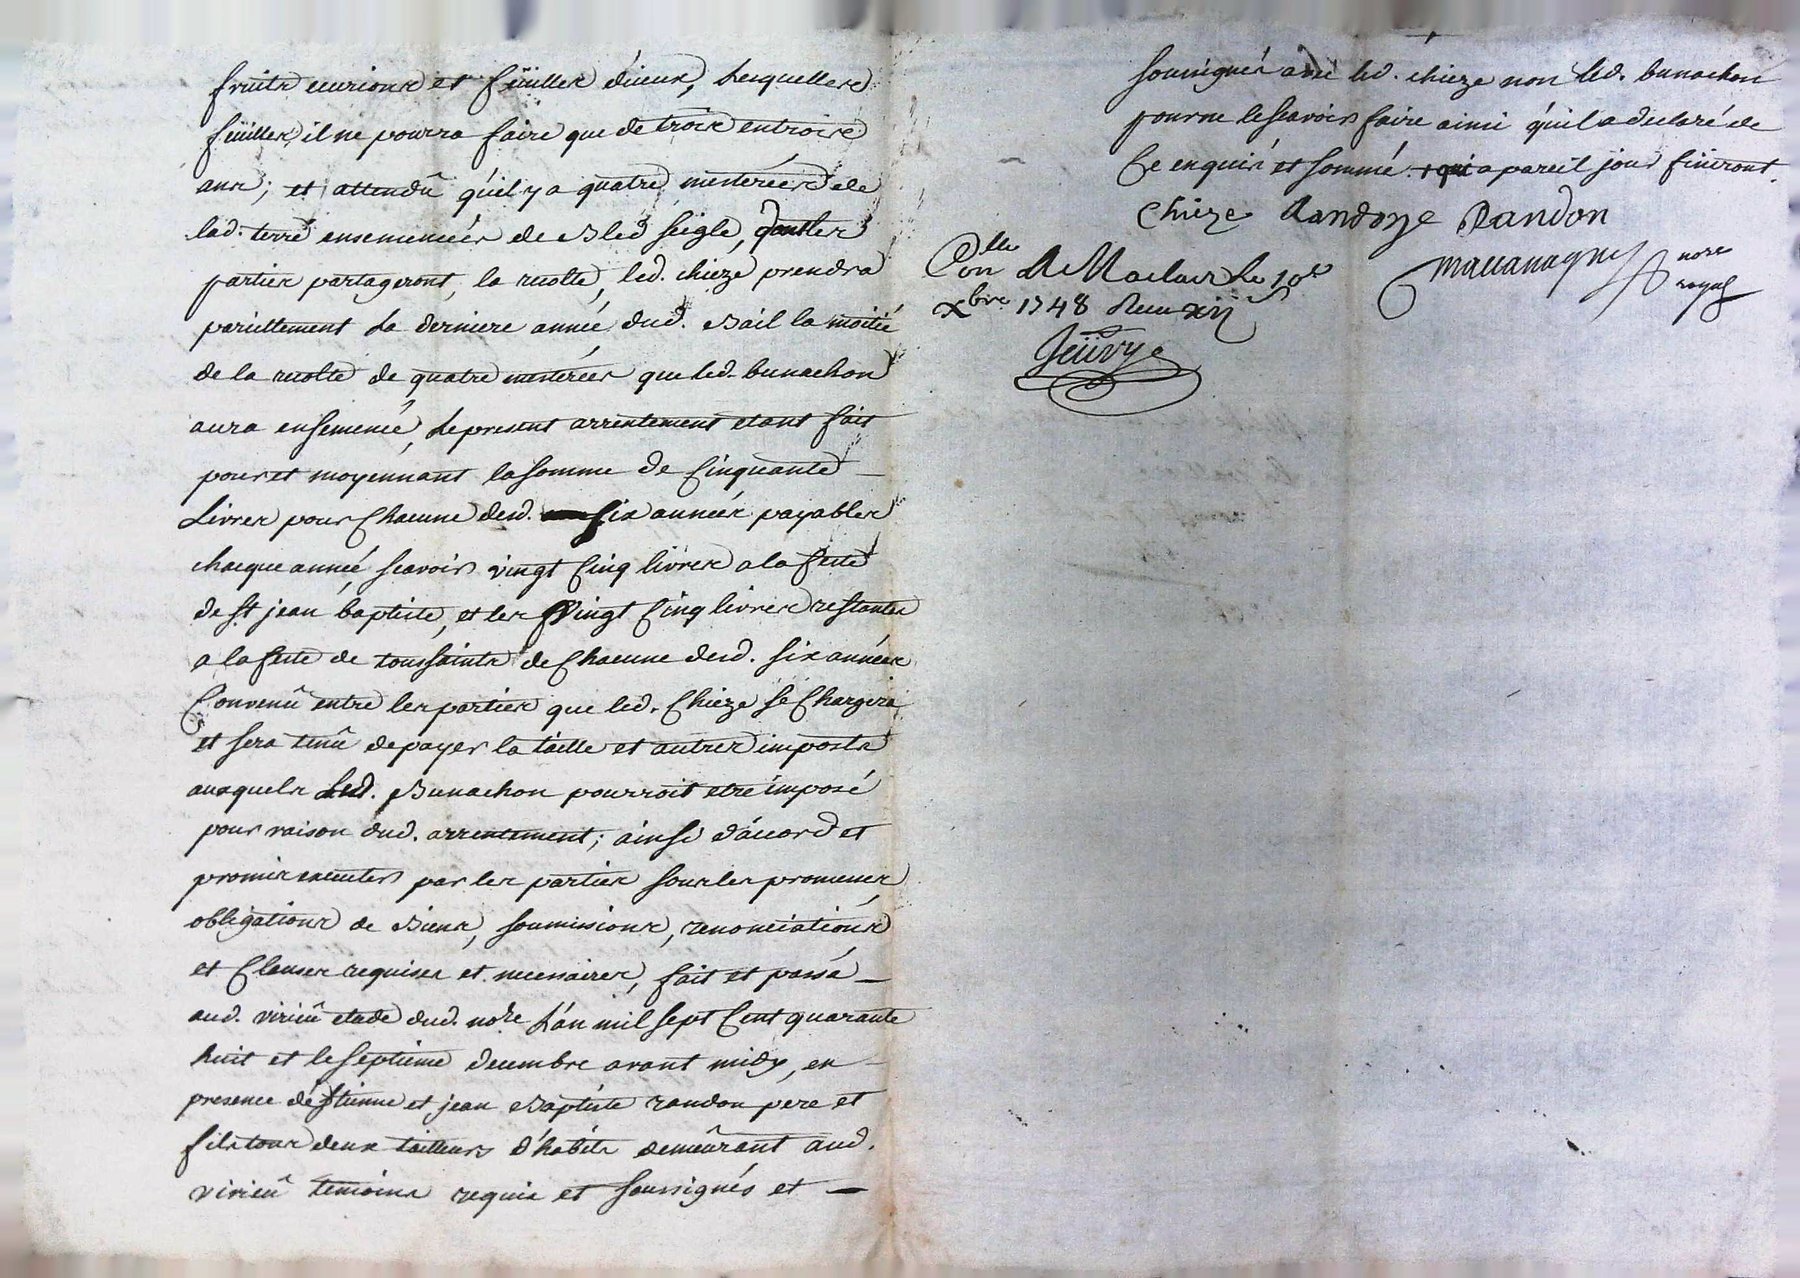 fruits usurions et feüilles d'iceux, Lesquelles
feüilles il ne pourra faire que de trois en trois
ans; et attendû qu'il y a quatre mesterées de
lad. terre ensemencées de Bled seigle, dont les
parties partageront la recolte, led. chieze prendra
pareillement La derniere année dud. Bail la moitié
de la recolte de quatre mesterées que led. bunachon
aura ensemencé, Le present arrentement etant fait
pour et moyennant la somme de Cinquante
Livres pour Chacune desd. six années payables
chacque année scavoir vingt Cinq livres a la feste
de st jean baptiste, et les Vingt Cinq livres restantes
a la feste de toussaints de Chacune desd. six années
Convenû entre les parties que led. Chieze se Chargera
et sera tenû de payer la taille et autres imposts
auxquels Led. Bunachon pourroit etre imposé
pour raison dud. arrentement; ainsi d'accord et
promis executer par les parties sous les promesses
obligations de Biens, soumissions, renonciations
et Clauses requises et necessaires, fait et passé
aud. virieû etude dud. nore L'an mil sept Cent quarante
huit et le septieme decembre avant midy, en
presence d'éstienne et jean Baptiste randon pere et
fils tous deux tailleurs d'habits demeûrant aud.
virieû temoins requis et soussignés et
soussignés avec led. chieze non led. bunachon
pour ne le scavoir faire ainsi qu'il a declaré de
Ce enquis et sommé. + qui a pareil jour finiront.
Chieze Randon Randon
Conllé A Maclas Le 10e
xbre 1748 Reçu xij s
nore
royal